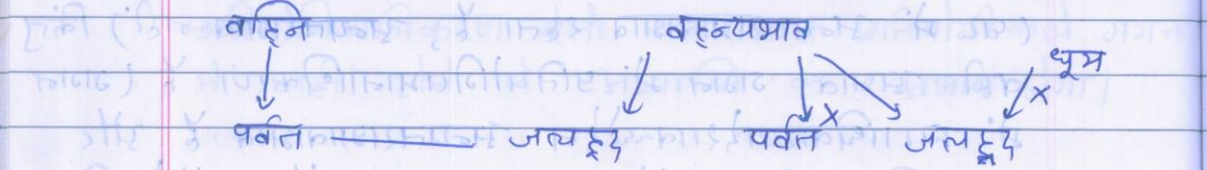 वह्नि वह्न्यभाव
धूम
x x
पर्वत जलह्रद पर्वत जलह्रद